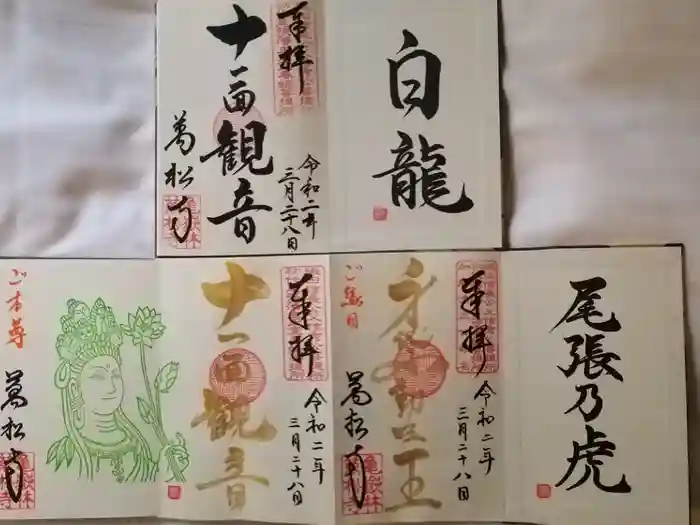 奉拝
十一面観音
令和二年
三月二十八日
萬松寺
白龍
奉拝
十一面観音
令和二年
三月二十八日
ご本尊
萬松寺
奉拝
不動明王
令和二年
三月二十八日
ご縁日
萬松寺
尾張乃虎